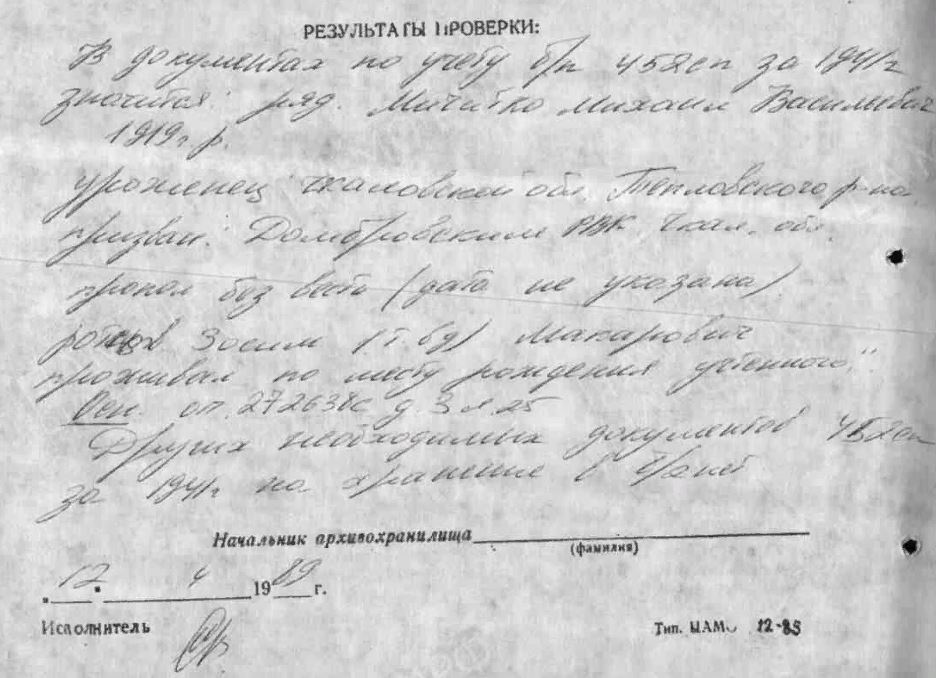 РЕЗУЛЬТАТЫ ПРОВЕРКИ:
В документах по учету б/п 452сп за 1941г
значится: ряд. Мичитко Михаил Васильевич
1919г р.
уроженец: Чкаловской обл. Тепловского р-на.
призван: Домбровским РВК Чкал. обл.
пропал без вести (дата не указана)
Зосим (т. бу) Макирович
проживал по месту рождения учтенного."
Осн. оп. 272638с д. 3 л. 25
Других необходимых документов 452сп
за 1941г на хранение в
Начальник архивохранилища
(фамилия)
12. 4 1989 г.
Исполнитель
Тип. ЦАМО 12-85